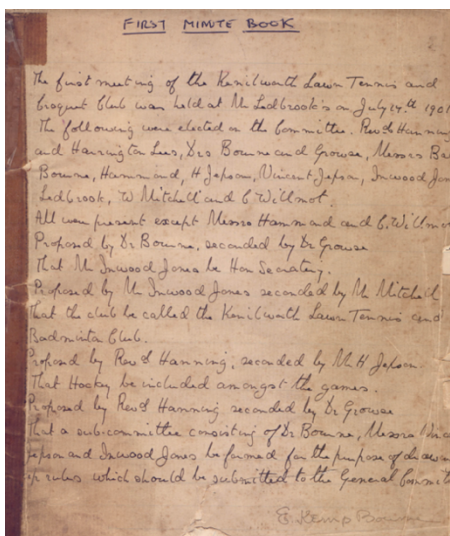 FIRST MINUTE BOOK
The first meeting of the Kenilworth Lawn Tennis and
Croquet Club was held at Mr Ledbrook's on July 14th 1901
The following were elected on the Committee. Revds Hanning
and Harrington Lees, Drs Bourne and Growse, Messrs
Bourne, Hammond, H Jepson, Vincent Jepson, Inwood Jones
Ledbrook, W Mitchell and C Willmot.
All were present except Messrs Hammond and C. Willmot
Proposed by Dr Bourne, seconded by Dr Growse
That Mr Inwood Jones be Hon Secretary.
Proposed by Mr Inwood Jones seconded by Mr Mitchell
That the club be called the Kenilworth Lawn Tennis and
Badminton Club.
Proposed by Revd Hanning, seconded by Mr H Jepson.
That Hockey be included amongst the games.
Proposed by Revd Hanning seconded by Dr Growse
That a sub-committee consisting of Dr Bourne, Messrs
Jepson and Inwood Jones be formed for the purpose of drawing
up rules which should be submitted to the General Committ
E. Kemp Bourne